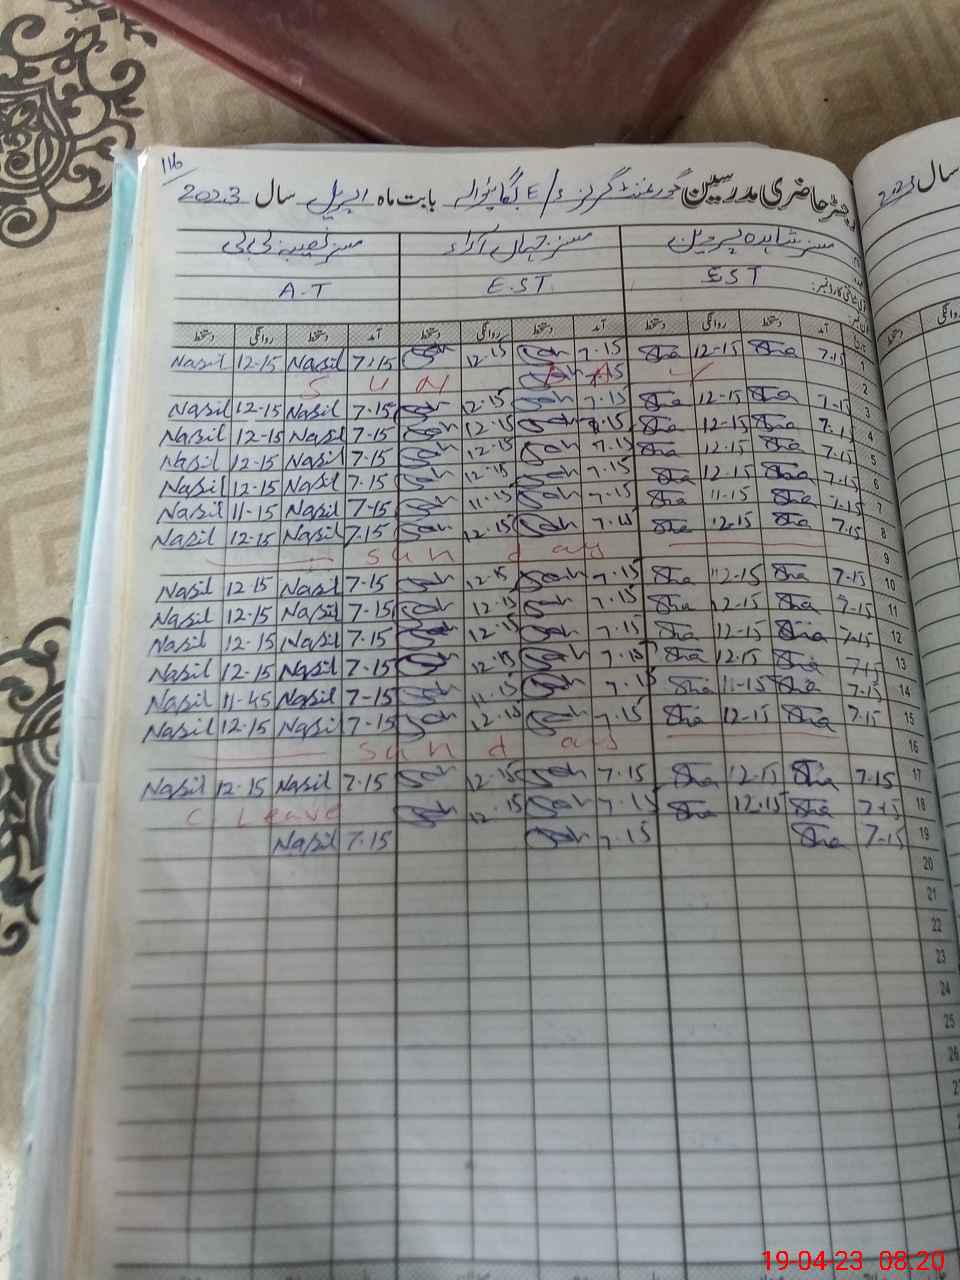 116
رجسٹر حاضری مدرسین گورنمنٹ گرلز بابت ماہ اپریل سال 2023
سال 2023
مسز شاہدہ پروین مسز جہاں آراء مسز نصیب بی بی
EST E.ST A.T
آمد دستخط روانگی دستخط آمد دستخط روانگی دستخط آمد دستخط روانگی دستخط
1 7.15 Sha 12-15 Sha 7.15 12.15 7.15 Nasil 12-15 Nasil
2 S U N
3 7-15 Sha 12-15 Sha 7.15 12.15 7.15 Nasil 12-15 Nasil
4 7.15 Sha 12-15 Sha 7.15 12.15 7-15 Nasil 12-15 Nasil
5 7.15 Sha 12-15 Sha 7.15 12.15 7-15 Nasil 12-15 Nasil
6 7.15 Sha 12-15 Sha 7.15 12.15 7-15 Nasil 12-15 Nasil
7 7.15 Sha 11-15 Sha 7.15 11.15 7-15 Nasil 11-15 Nasil
8 7.15 Sha 12-15 Sha 7.15 12.15 7.15 Nasil 12-15 Nasil
9 Sunday
10 7-15 Sha 12-15 Sha 7.15 12.15 7-15 Nasil 12-15 Nasil
11 7-15 Sha 12-15 Sha 7.15 12.15 7-15 Nasil 12-15 Nasil
12 7.15 Sha 12-15 Sha 7.15 12.15 7-15 Nasil 12-15 Nasil
13 7-15 Sha 12.15 Sha 7.15 12.15 7-15 Nasil 12-15 Nasil
14 7-15 Sha 11-15 Sha 7.15 11.15 7-15 Nasil 11-45 Nasil
15 7.15 Sha 12-15 Sha 7.15 12.15 7-15 Nasil 12-15 Nasil
16 Sunday
17 7.15 Sha 12.15 Sha 7.15 12.15 7.15 Nasil 12.15 Nasil
18 7.15 Sha 12.15 Sha 7.15 12.15 C Leave
19 7-15 Sha 7.15 7.15 Nasil
20
21
22
23
24
25
26
19-04-23 08.20